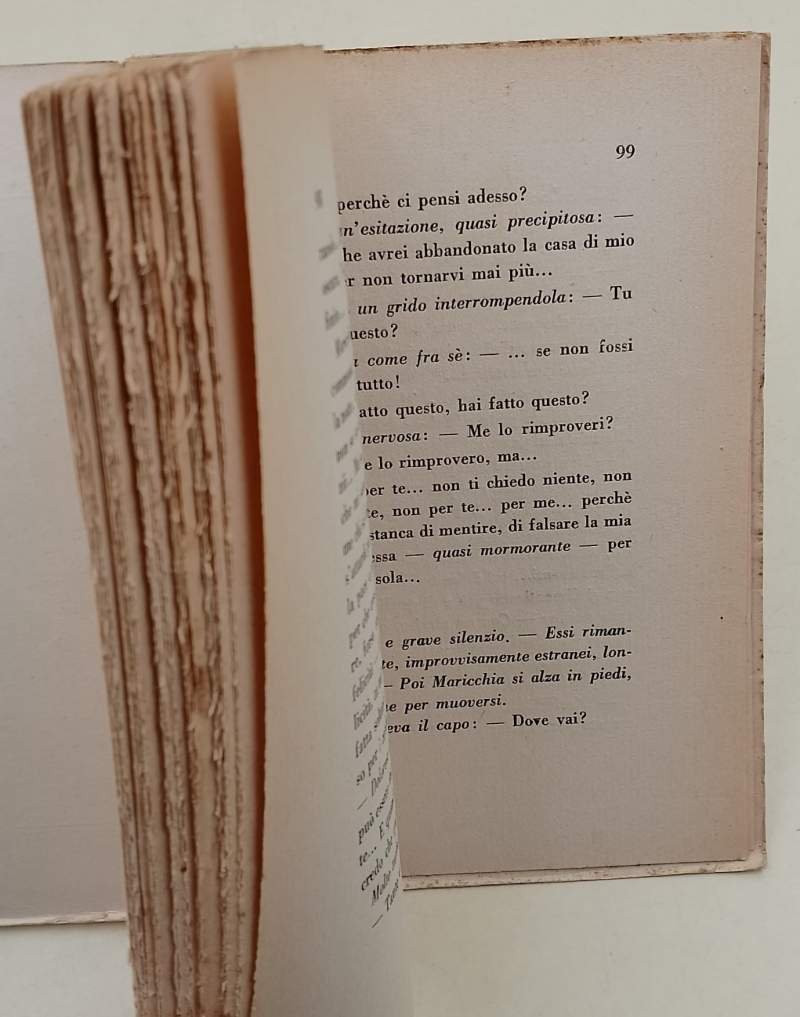 99
perchè ci pensi adesso?
n'esitazione, quasi precipitosa: —
he avrei abbandonato la casa di mio
r non tornarvi mai più...
un grido interrompendola: — Tu
uesto?
come fra sè: — ... se non fossi
tutto!
atto questo, hai fatto questo?
nervosa: — Me lo rimproveri?
e lo rimprovero, ma...
per te... non ti chiedo niente, non
te, non per te... per me... perchè
stanca di mentire, di falsare la mia
essa — quasi mormorante — per
sola...
e grave silenzio. — Essi riman-
te, improvvisamente estranei, lon-
— Poi Maricchia si alza in piedi,
ne per muoversi.
eva il capo: — Dove vai?
so per
può
te...
credo che
Molte